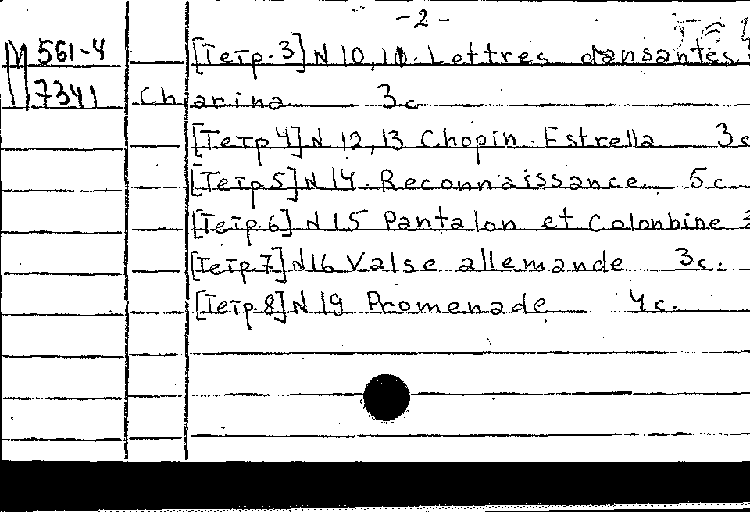 -2-
М 561-4
7341
[Тетр. 3] N 10, 11. Lettres dansantes.
Charina 3с
[Тетр 4] N 12, 13 Chopin. Estrella 3с
[Тетр 5] N 14. Reconnaissance 5с.
[Тетр. 6] N 15 Pantalon et Colonbine 3
[Тетр. 7] N16 Valse allemande 3с.
[Тетр. 8] N 19 Promenade 4с.